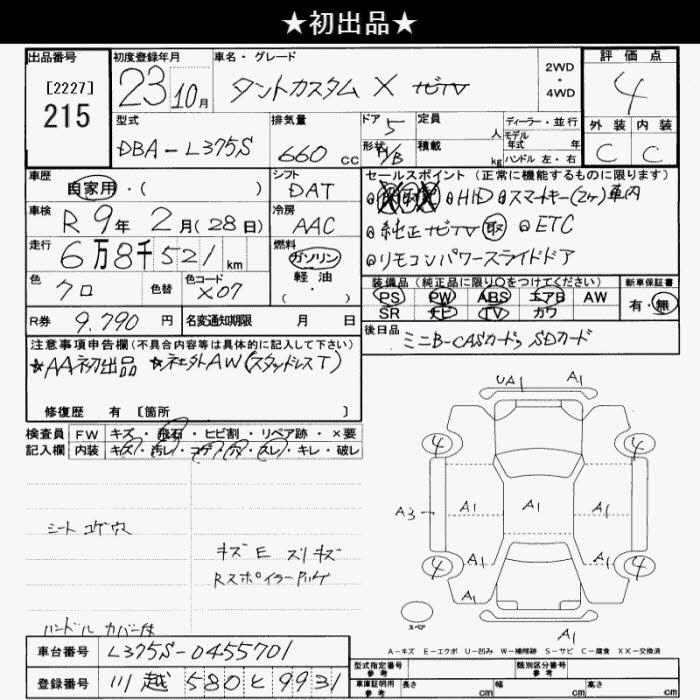 ★初出品★
出品番号
[2227]
215
初度登録年月
23 10月
車名・グレード
タントカスタム X ナビTV
2WD・4WD
評価点
4
外装 内装
C C
型式
DBA-L375S
排気量
660 cc
ドア 5
形状 H/B
定員 人
積載 kg
ディーラー・並行
モデル年式 年
ハンドル 左・右
車歴
自家用・( )
シフト
DAT
車検
R 9年 2月(28日)
冷房
AAC
走行
6万8千521 km
燃料
ガソリン
軽油
・( )
色
クロ
色替
色コード
X07
R券 9.790 円
名変通知期限 月 日
セールスポイント(正常に機能するものに限ります)
HID スマートキー(2ケ)車内
純正ナビTV 取 ETC
リモコンパワースライドドア
装備品(純正品に限り○をつけてください)
PS PW ABS エアB AW
SR ナビ TV カワ
新車保証書
有・無
後日品
ミニB-CASカード, SDカード
注意事項申告欄(不具合内容等は具体的に記入して下さい)
★AA初出品 ★社外AW(スタッドレスT)
修復歴 有 [箇所 ]
検査員記入欄
FW キズ・飛石・ヒビ割・リペア跡・×要
内装 キズ・汚レ・コゲ・穴・スレ・キレ・破レ
シート コゲ ウス
キズ E スリキズ
Rスポイラー
ハンドル カバー付
UA1 A1
4 4
A3 A1 A1 A1
A1 A1
4 4
A1 A1
A1
スペア
A-キズ E-エクボ U-凹み W-補修跡 S-サビ C-腐食 XX-交換済
車台番号 L375S-0455701
登録番号 川越 580 と 9931
型式指定番号 参考
類別区分番号 参考
車庫証明用 参考 長さ cm 幅 cm 高さ cm